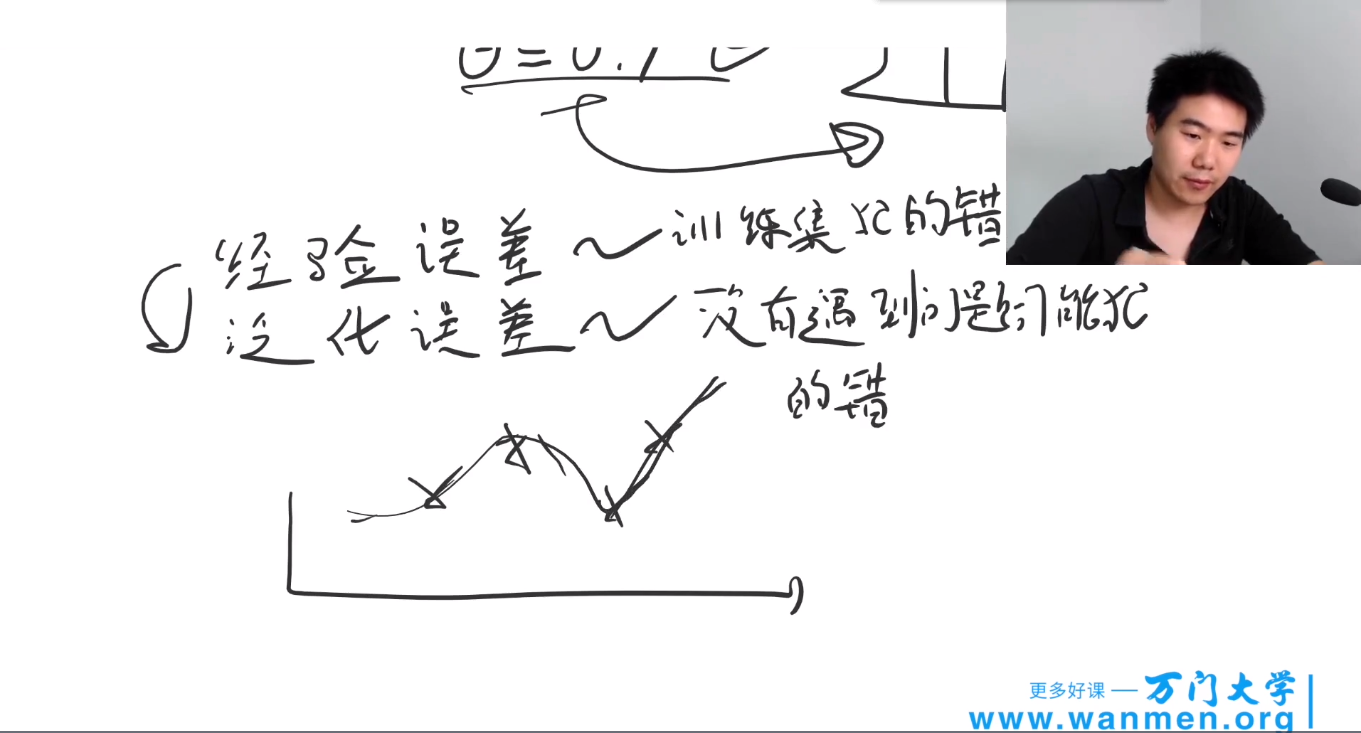 θ=0.7
经验误差 ～ 训练集犯的错
泛化误差 ～ 没有遇到问题可能犯
的错
更多好课 — 万门大学
www.wanmen.org